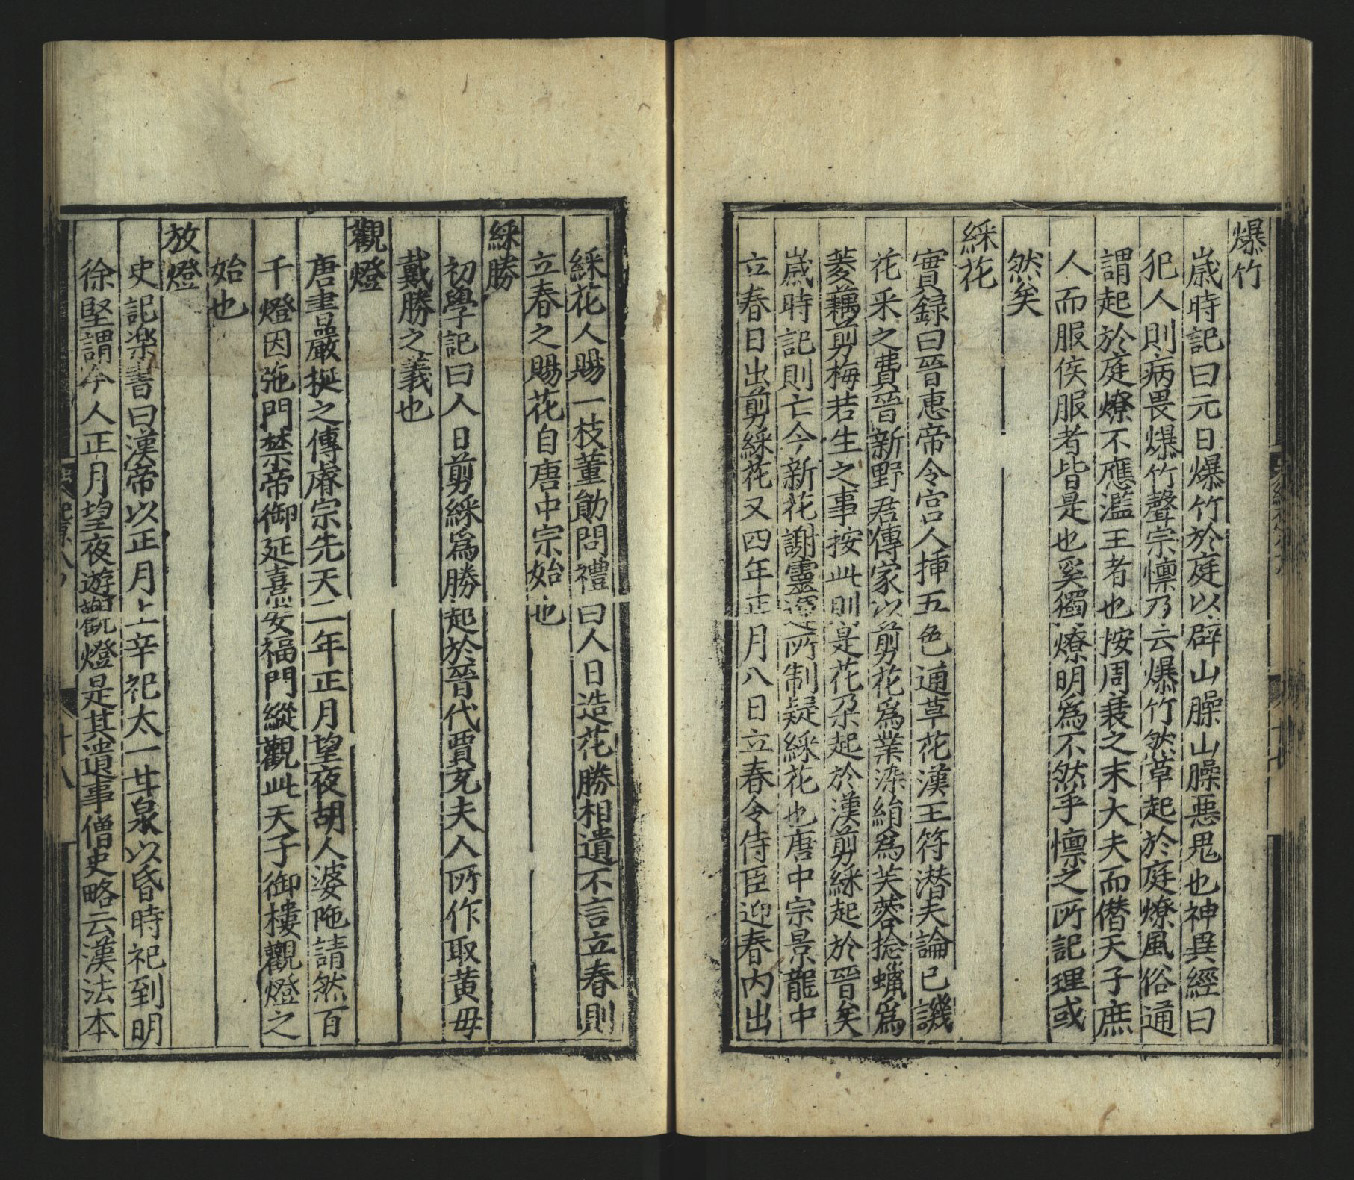 爆竹
歲時記曰元日爆竹於庭以辟山臊山臊惡鬼也神異經曰
犯人則病畏爆竹聲宗懍乃云爆竹然草起於庭燎風俗通
謂起於庭燎不應濫王者也按周衰之末大夫而僭天子庶
人而服侯服者皆是也奚獨燎明爲不然乎懍之所記理或
然矣
綵花
實録曰晉惠帝令宮人插五色通草花漢王符潜夫論已譏
花采之費晉新野君傳家以剪花爲業染絹爲芙蓉捻蠟爲
菱藕剪梅若生之事按此則是花朶起於漢剪綵起於晉矣
歲時記則亡今新花謝靈運所制疑綵花也唐中宗景龍中
立春日出剪綵花又四年正月八日立春令侍臣迎春内出
綵花人賜一枝董勛問禮曰人日造花勝相遺不言立春則
立春之賜花自唐中宗始也
綵勝
初學記曰人日剪綵爲勝起於晉代賈充夫人所作取黄毋
戴勝之義也
觀燈
唐書嚴挺之傳睿宗先天二年正月望夜胡人婆陁請然百
千燈因弛門禁帝御延喜安福門縱觀此天子御樓觀燈之
始也
放燈
史記樂書曰漢帝以正月上辛祀太一甘泉以昏時祀到明
徐堅謂今人正月望夜遊觀燈是其遺事僧史略云漢法本